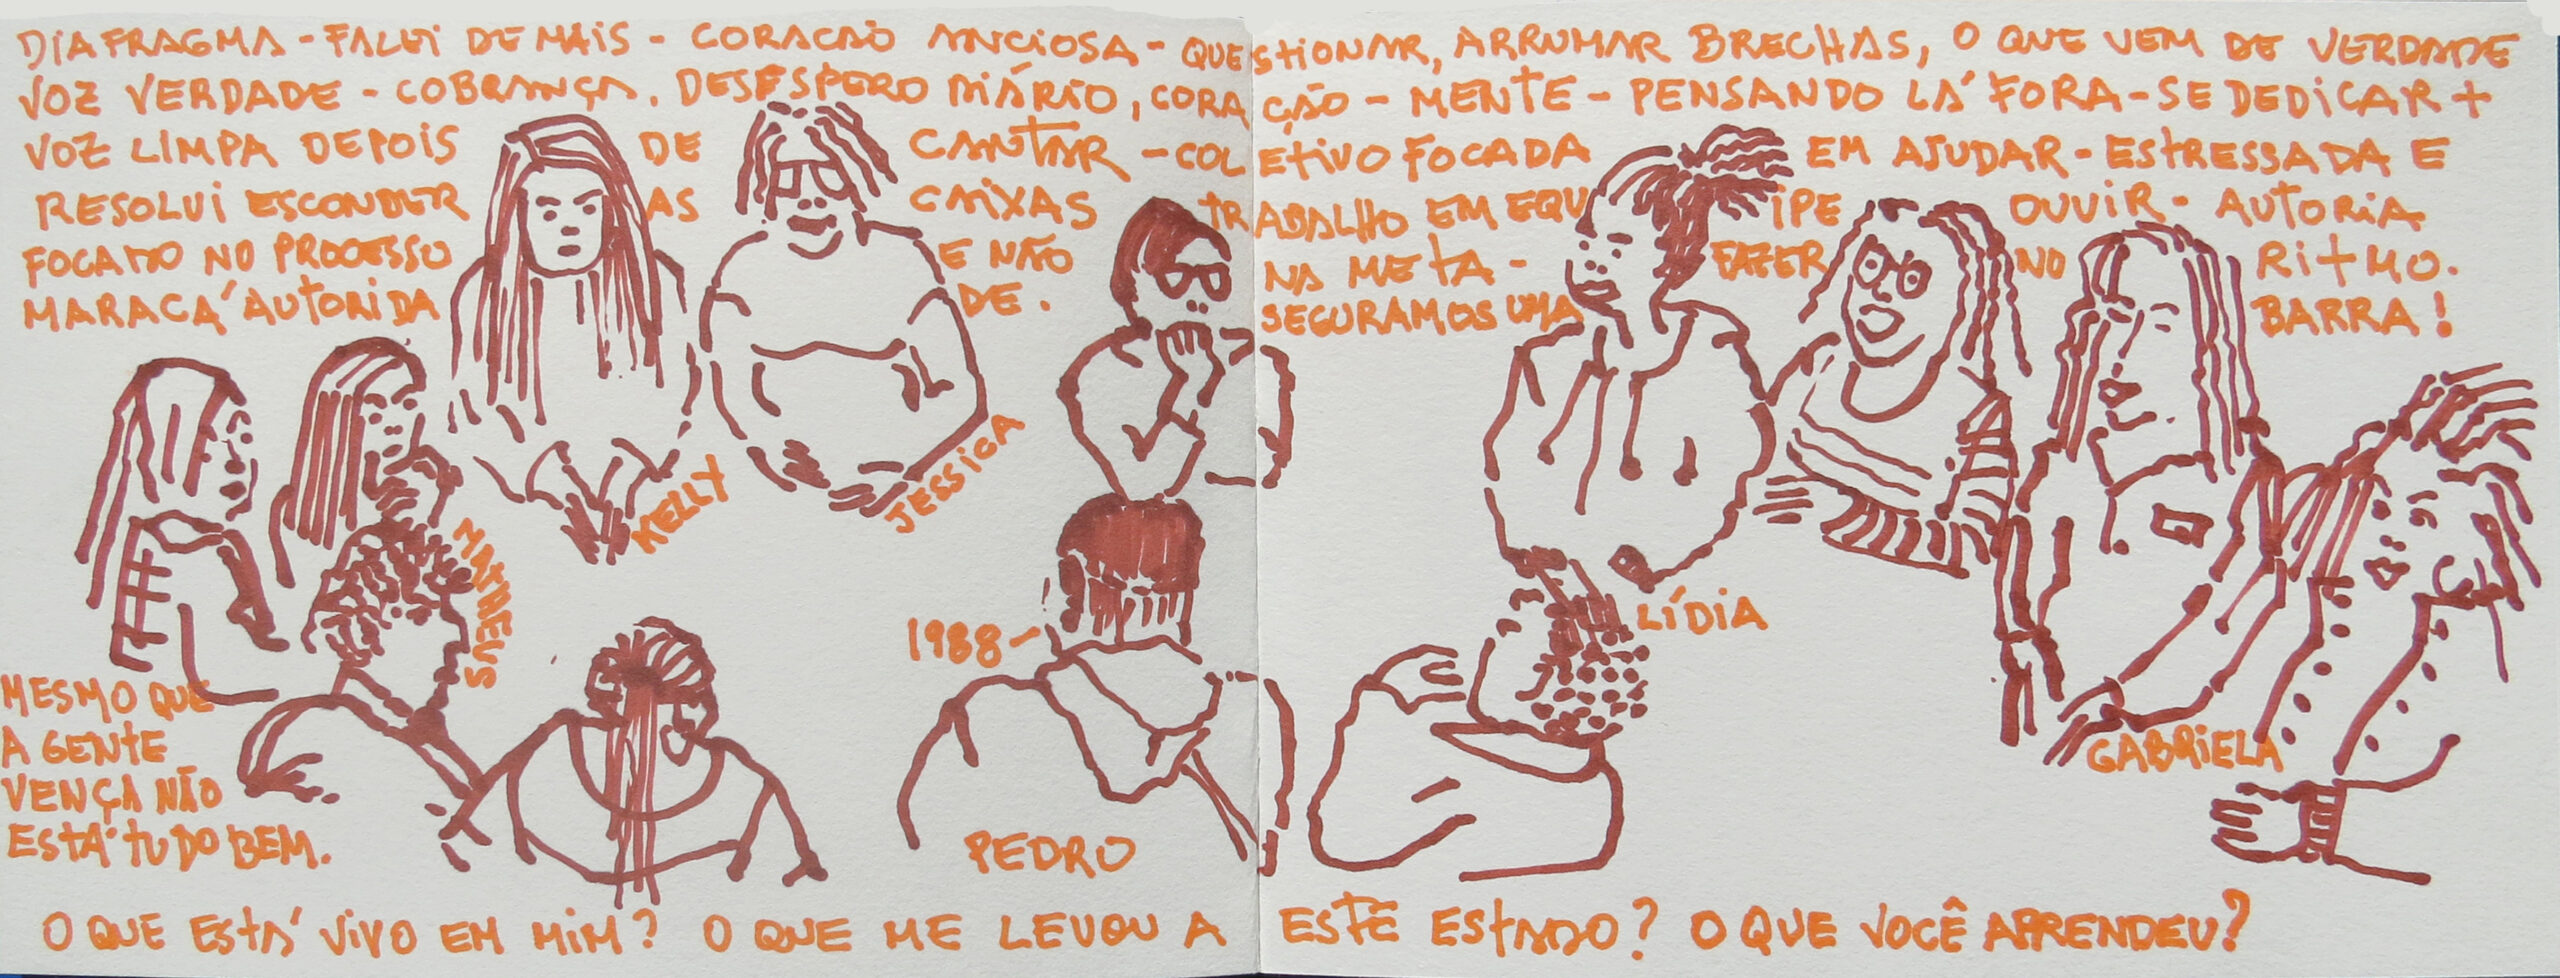 DIAFRAGMA - FALEI DEMAIS - CORACAO ANCIOSA - QUESTIONAR, ARRUMAR BRECHAS, O QUE VEM DE VERDADE
VOZ VERDADE - COBRANÇA. DESESPERO DIÁRIO, CORAÇÃO - MENTE - PENSANDO LÁ FORA - SE DEDICAR +
VOZ LIMPA DEPOIS DE CANTAR - COLETIVO FOCADA EM AJUDAR - ESTRESSADA E
RESOLVI ESCONDER AS CAIXAS TRABALHO EM EQUIPE OUVIR - AUTORIA
FOCADO NO PROCESSO E NÃO NA META - FAZER NO RITMO.
MARACÁ AUTORIDADE. SEGURAMOS UMA BARRA!
KELLY
JESSICA
MATHEUS
LÍDIA
1988 -
MESMO QUE
A GENTE
VENÇA NÃO
ESTÁ TUDO BEM.
GABRIELA
PEDRO
O QUE ESTÁ VIVO EM MIM? O QUE ME LEVOU A ESTE ESTADO? O QUE VOCÊ APRENDEU?